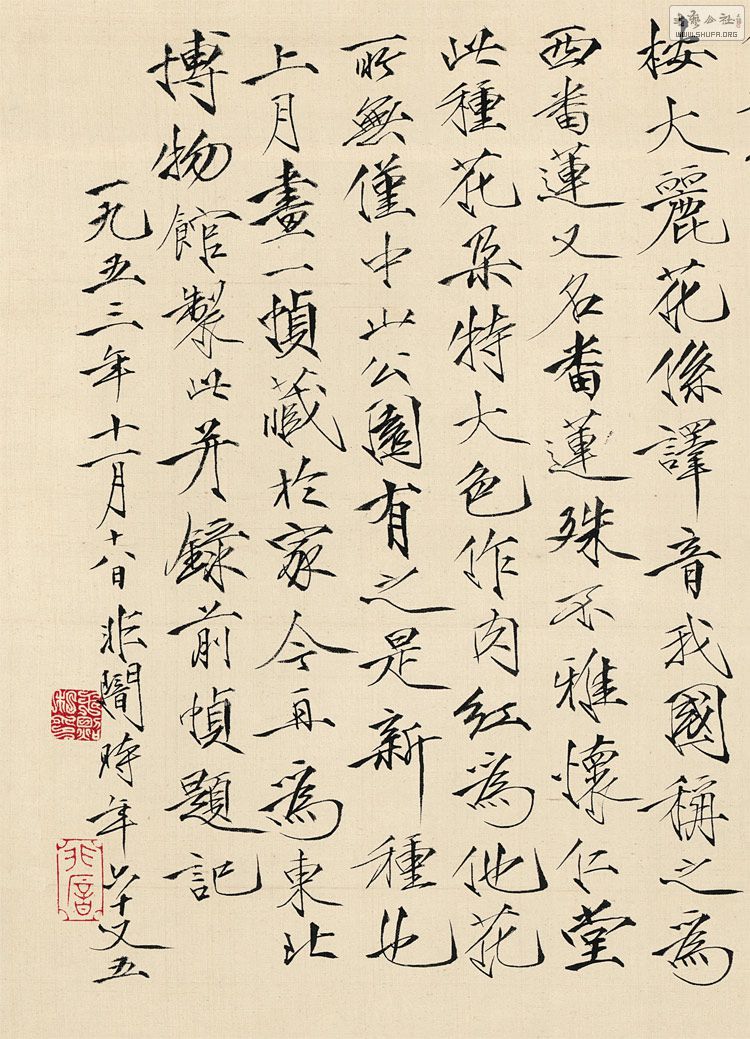 按大麗花係譯音我國稱之為
西番蓮又名番蓮殊不雅懷仁堂
此種花朵特大色作肉紅為他花
所無僅中山公園有之是新種也
上月畫一幀藏於家今再為東北
博物館製此并錄前幀題記
一九五三年十一月十八日非闇時年六十又五
非闇
WWW.SHUFA.ORG